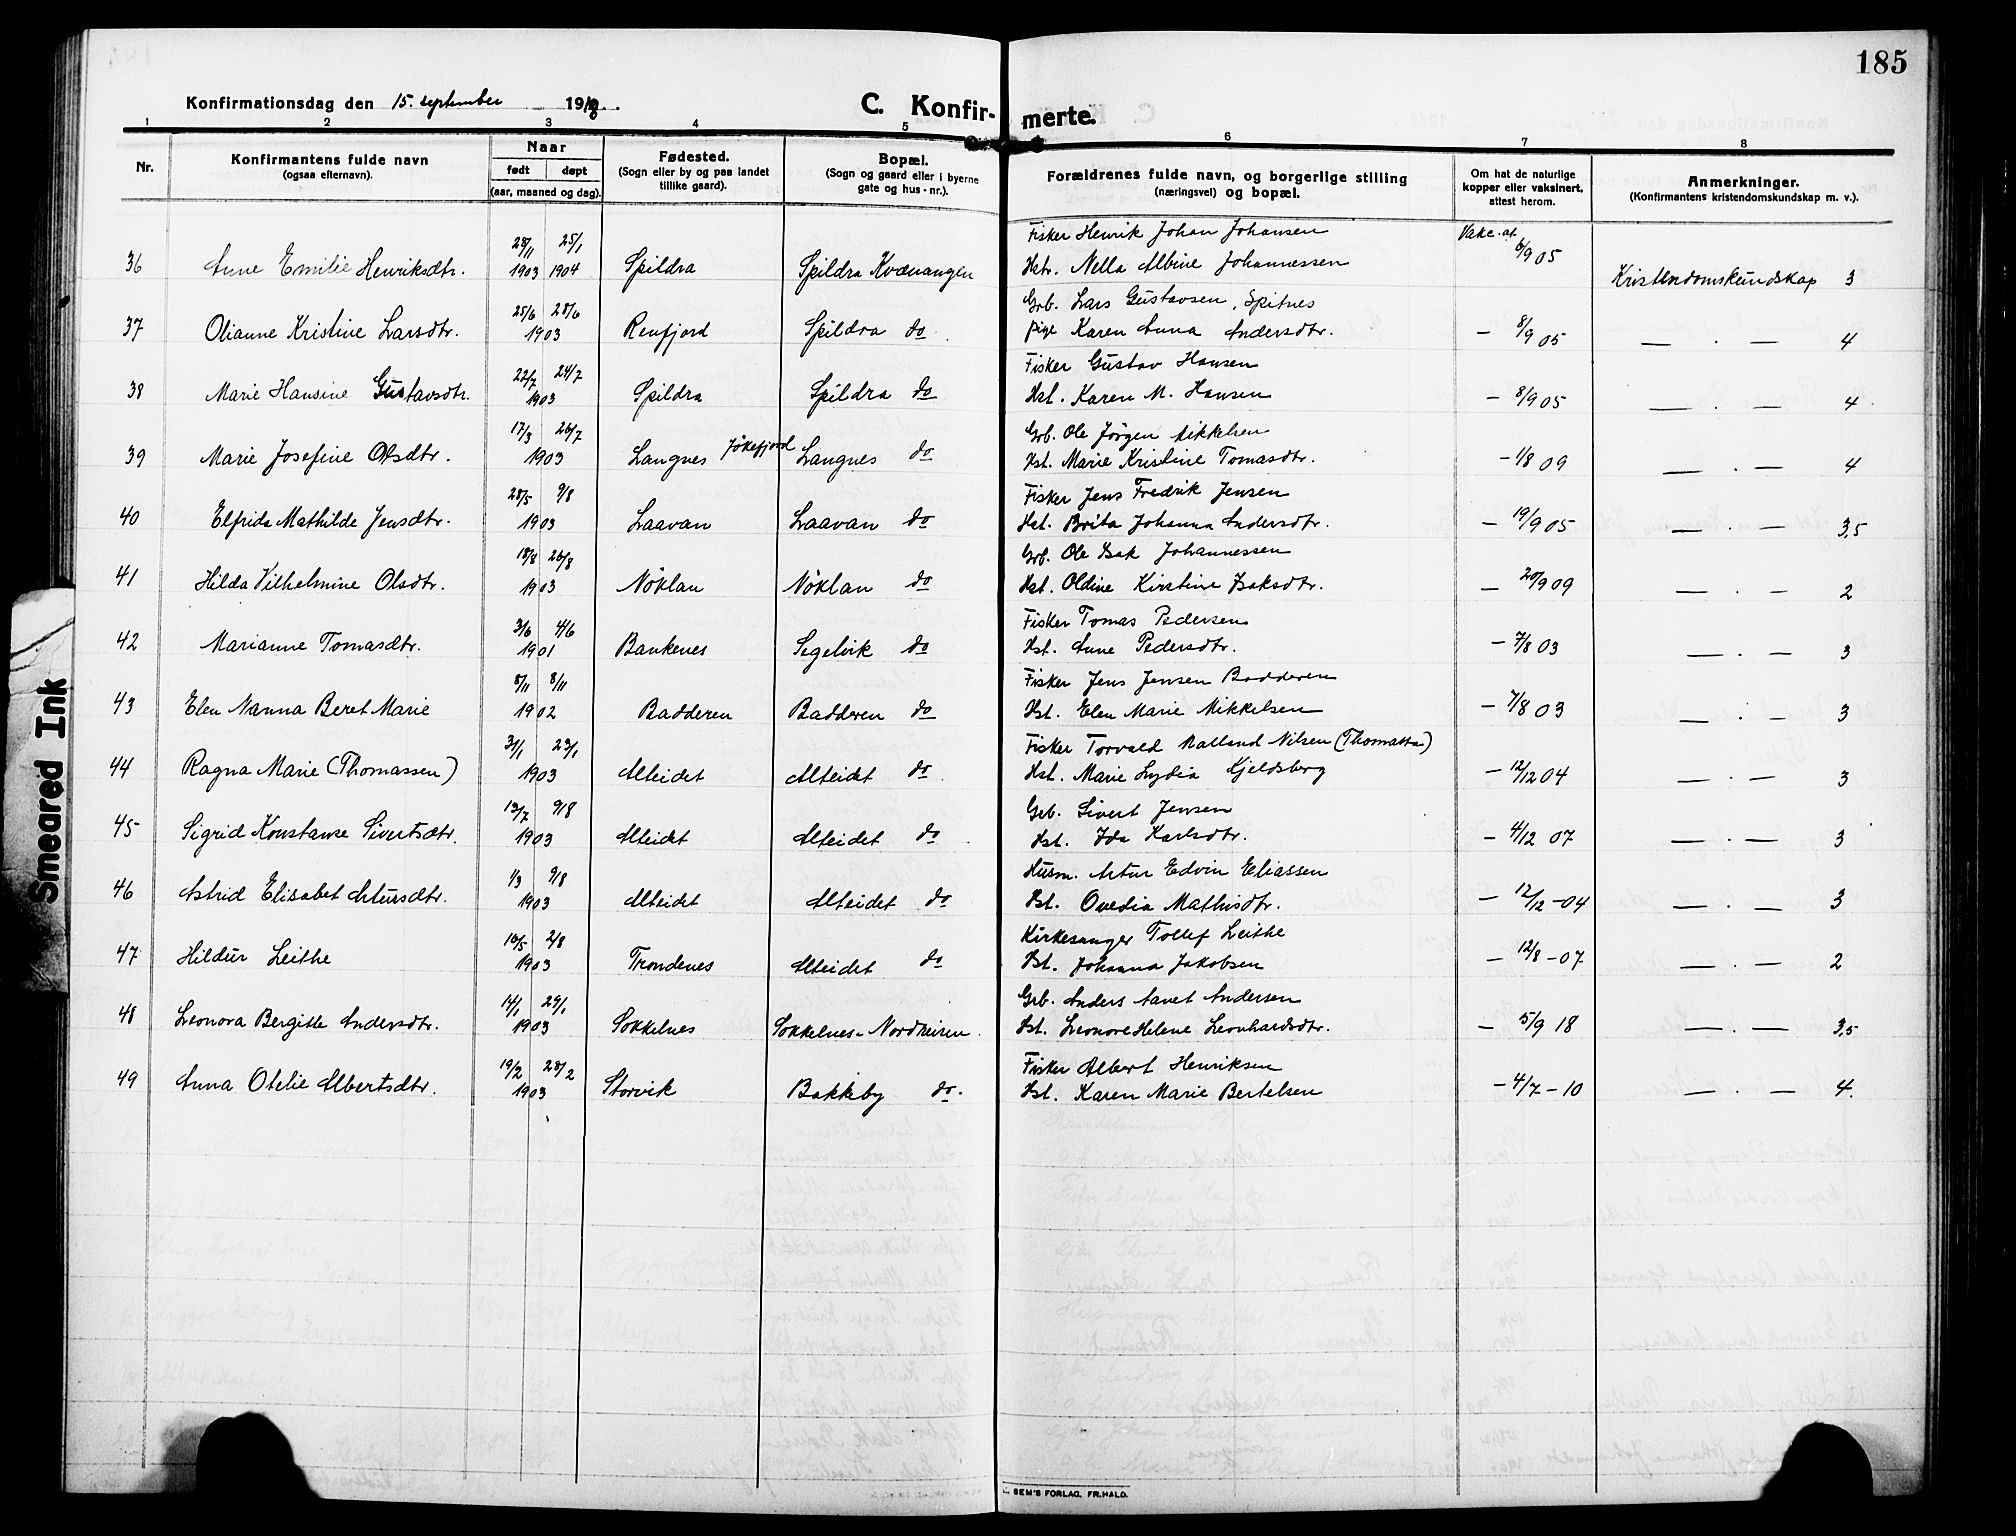 185
Konfirmationsdag den 15. september 1918.
C. Konfir-merte.
1 2 3 4 5 6 7 8
Nr.
Konfirmantens fulde navn
(ogsaa efternavn).
Naar
født døpt
(aar, maaned og dag).
Fødested.
(Sogn eller by og paa landet
tillike gaard).
Bopæl.
(Sogn og gaard eller i byerne
gate og hus-nr.).
Forældrenes fulde navn, og borgerlige stilling
(næringsvei) og bopæl.
Om hat de naturlige
kopper eller vaksinert,
attest herom.
Anmerkninger.
(Konfirmantens kristendomskundskap m. v.).
28/11 25/1 Fisker Henrik Johan Johansen Vakc. at.
36 Anne Emilie Henriksdtr. 1903 1904 Spildra Spildra Kvænangen Hstr. Nella Albine Johannessen 6/9 05 Kristendomskundskap 3
25/6 28/6 Grb. Lars Gustavsen, Spitnes
37 Olianne Kristine Larsdtr. 1903 Renfjord Spildra do. Pige Karen Anna Andersdtr. — 8/9 05 — . — 4
22/7 24/7 Fisker Gustav Hansen
38 Marie Hansine Gustavsdtr. 1903 Spildra Spildra do Hst. Karen M. Hansen — 8/9 05 — . — 4
17/3 26/7 Grb. Ole Jørgen Mikkelsen
39 Marie Josefine Olsdtr. 1903 Langnes Jøkefjord Langnes do Hst. Marie Kristine Tomasdtr. — 1/8 09 — . — 4
28/5 9/8 Fisker Jens Fredrik Jensen
40 Elfrida Mathilde Jensdtr. 1903 Laavan Laavan do Hst. Brita Johanna Andersdtr. — 19/9 05 — . — 3,5
18/8 26/8 Grb. Ole Isak Johannessen
41 Hilda Vilhelmine Olsdtr. 1903 Nöklan Nöklan do Hst. Oldine Kirstine Isaksdtr. — 20/9 09 — . — 2
3/6 4/6 Fisker Tomas Pedersen
42 Marianne Tomasdtr. 1901 Bankenes Segelvik do Hst. Anne Pedersdtr. — 7/8 03 — . — 3
8/11 8/11 Fisker Jens Jensen Badderen
43 Elen Nanna Beret Marie 1902 Badderen Badderen do Hst. Elen Marie Mikkelsen — 7/8 03 — . — 3
31/1 23/1 Fisker Torvald Malland Nilsen
44 Ragna Marie (Thomassen) 1903 Alteidet Alteidet do Hst. Marie Lydia Kjeldsberg — 12/12 04 — . — 3
13/7 9/8 Grb. Sivert Jensen
45 Sigrid Konstanse Sivertsdtr. 1903 Alteidet Alteidet do Hst. Ida Karlsdtr. — 4/12 07 — . — 3
1/3 9/8 Husm. Artur Edvin Eliassen
46 Astrid Elisabet Artursdtr. 1903 Alteidet Alteidet do Hst. Ovedia Mathisdtr. — 12/12 - 04 — . — 3
16/5 2/8 Kirkesanger Tollef Leithe
47 Hildur Leithe 1903 Trondenes Alteidet do Hst. Johanna Jakobsen — 12/8 - 07 — . — 2
14/1 29/1 Grb. Anders Aanet Andersen
48 Leonora Bergitte Andersdtr. 1903 Sokkelnes Sokkelnes - Nordreisen. Hst. Leonore Helene Leonhardsdtr. — 5/9 18 — . — 3,5
19/2 28/2 Fisker Albert Henriksen
49 Anna Otelie Albertsdtr. 1903 Storvik Bakkeby do. Hst. Karen Marie Bertelsen — 4/7 - 10 — . — 4.
Smeared Ink
SEM'S FORLAG, FR.HALD.